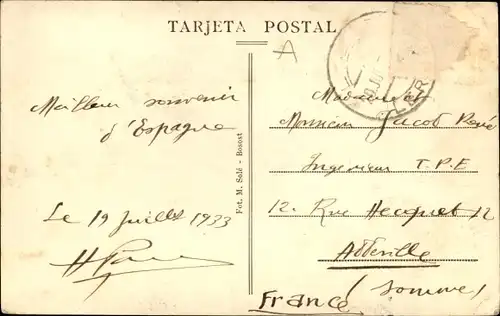 TARJETA POSTAL
A
Meilleur souvenir
d'Espagne
Le 19 Juillet 1933
Fot. M. Solé - Bosost
Madame et
Monsieur Jacob René
Ingenieur T.P.E
12. Rue Hecquet 12
Abbeville
(Somme)
France